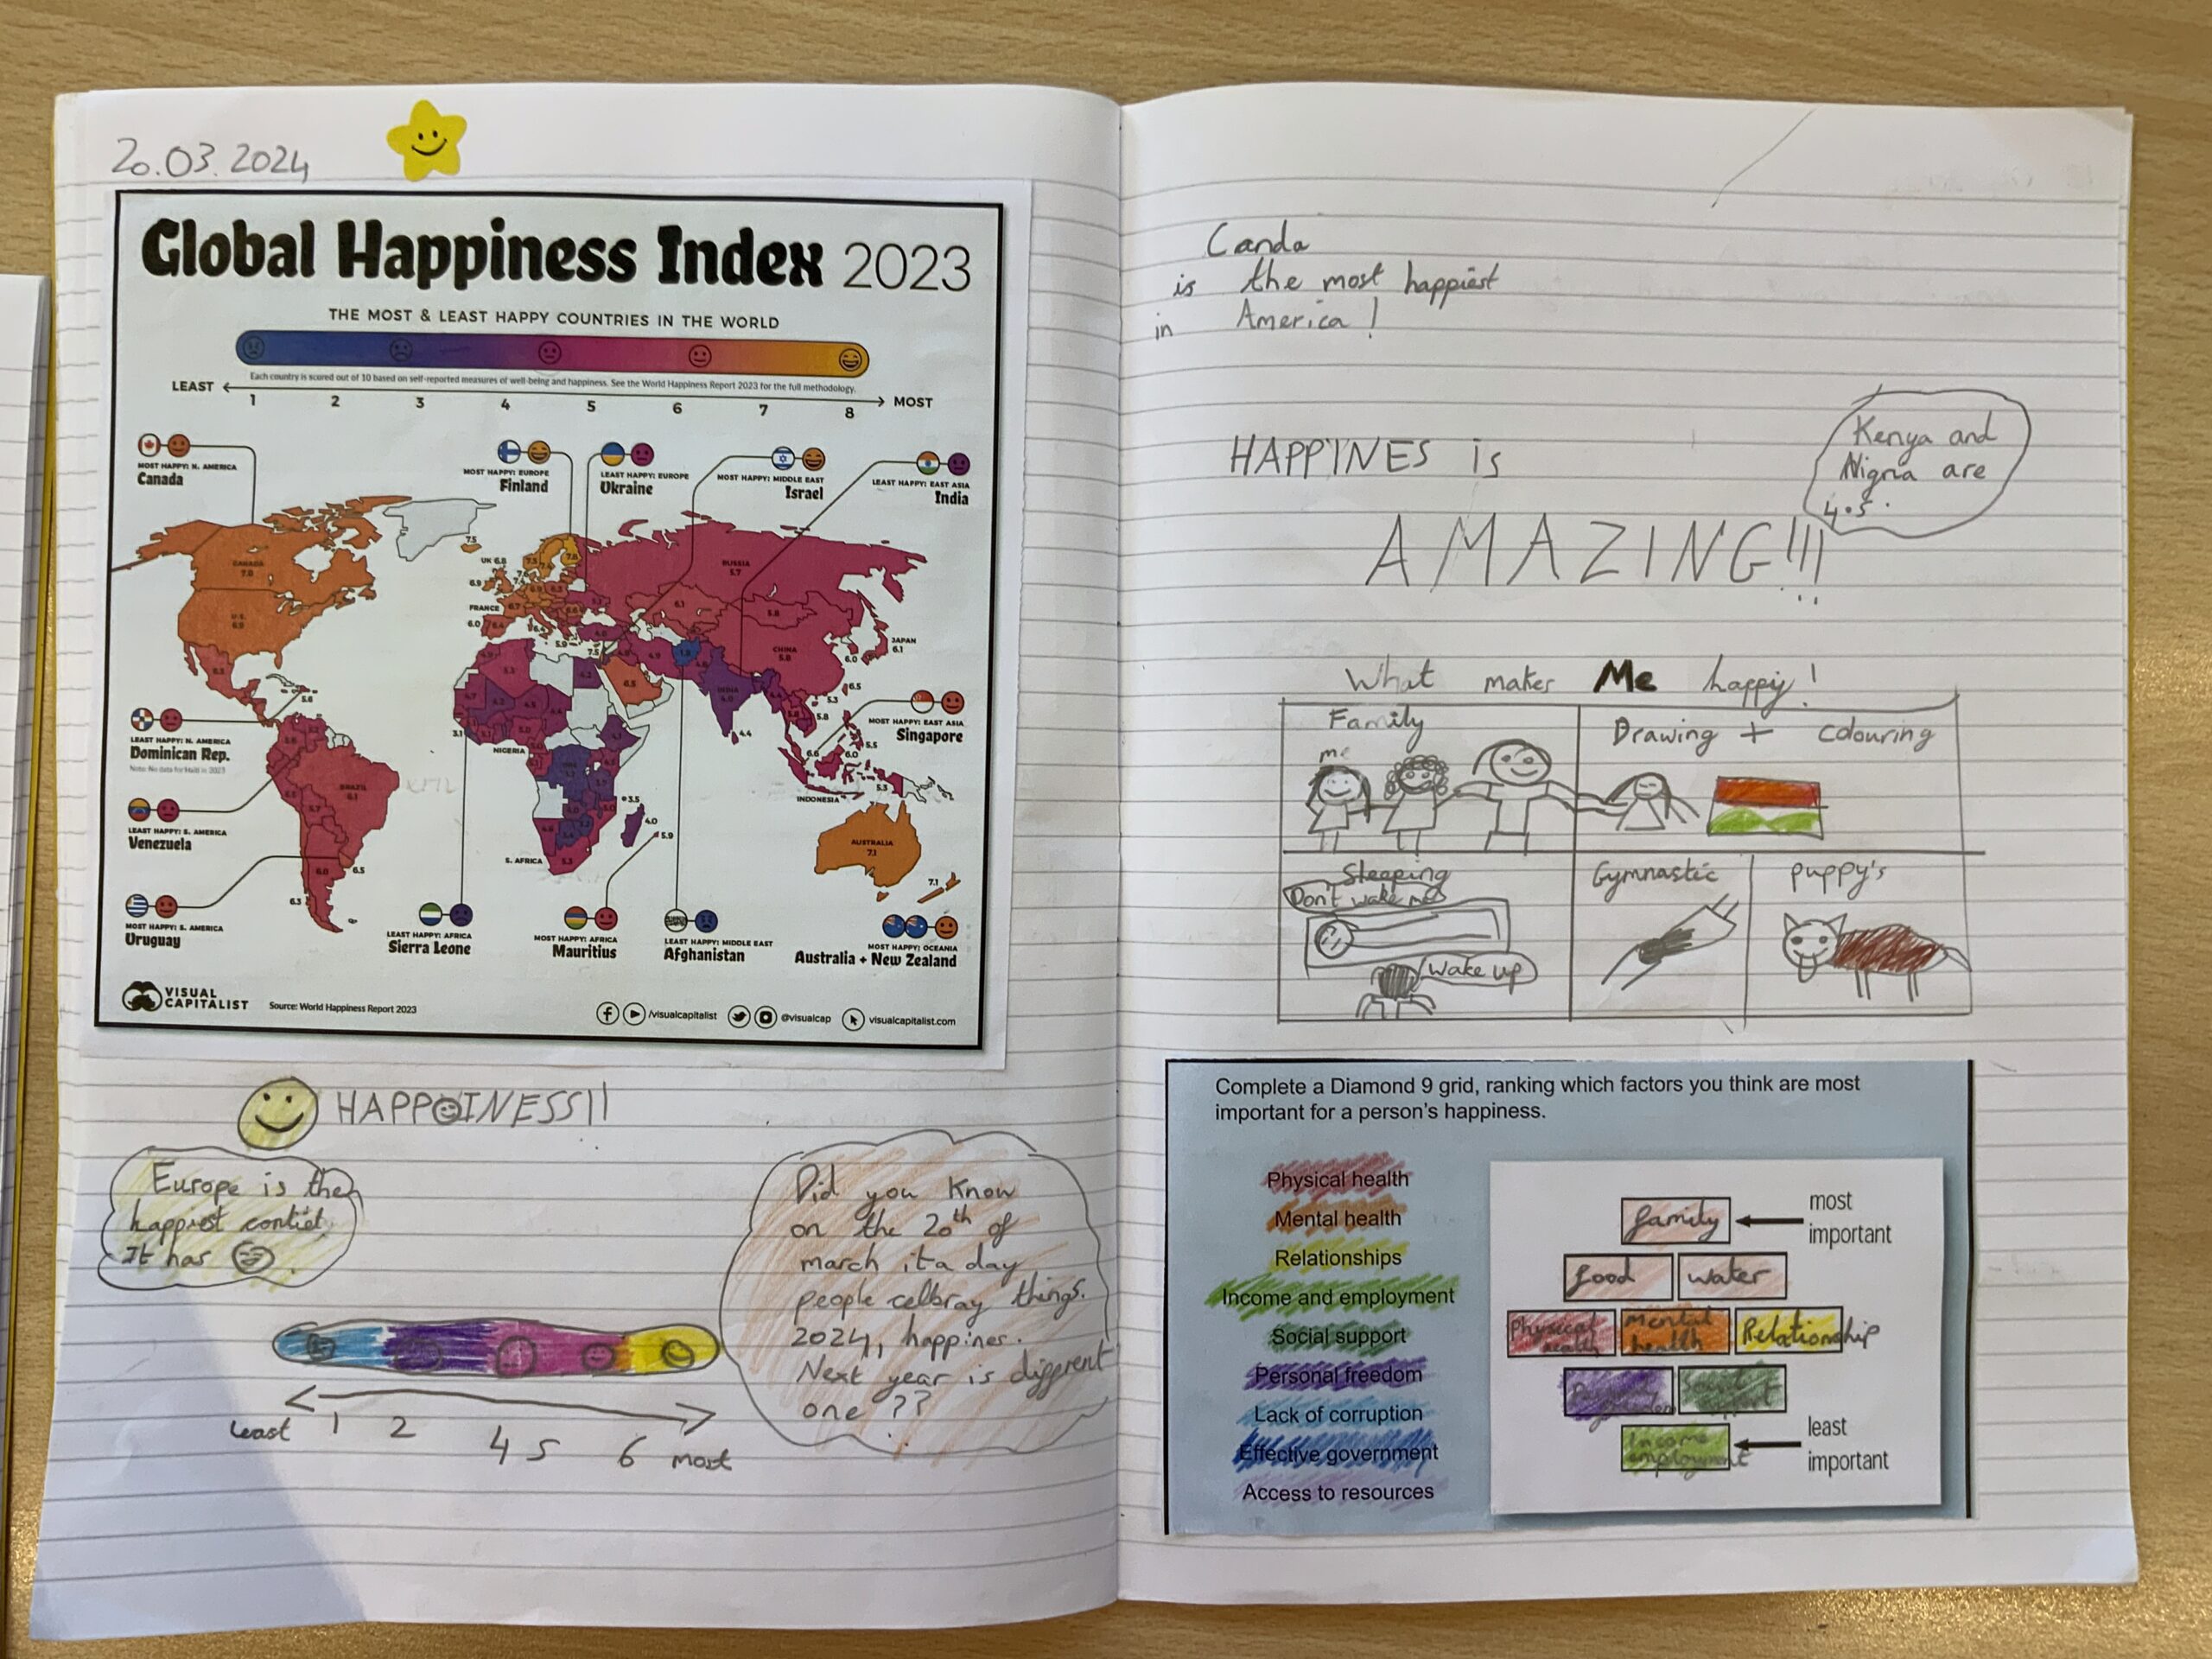 20.03.2024
Global Happiness Index 2023
THE MOST & LEAST HAPPY COUNTRIES IN THE WORLD
Each country is scored out of 10 based on self-reported measures of well-being and happiness. See the World Happiness Report 2023 for the full methodology.
LEAST
MOST
1 2 3 4 5 6 7 8
MOST HAPPY: N. AMERICA
Canada
MOST HAPPY: EUROPE
Finland
LEAST HAPPY: EUROPE
Ukraine
MOST HAPPY: MIDDLE EAST
Israel
LEAST HAPPY: EAST ASIA
India
CANADA
7.0
U.S.
6.9
7.5
UK 6.8
6.9
FRANCE
6.0
RUSSIA
5.7
6.1
5.8
CHINA
5.8
JAPAN
6.1
6.0
6.5
INDIA
4.0
4.4
5.8
5.3
5.5
6.0
INDONESIA
5.3
NIGERIA
3.1
BRAZIL
6.1
5.6
6.5
6.3
6.0
S. AFRICA
5.3
3.5
4.0
5.9
AUSTRALIA
7.1
7.1
LEAST HAPPY: N. AMERICA
Dominican Rep.
Note: No data for Haiti in 2023
LEAST HAPPY: S. AMERICA
Venezuela
MOST HAPPY: S. AMERICA
Uruguay
LEAST HAPPY: AFRICA
Sierra Leone
MOST HAPPY: AFRICA
Mauritius
LEAST HAPPY: MIDDLE EAST
Afghanistan
MOST HAPPY: EAST ASIA
Singapore
MOST HAPPY: OCEANIA
Australia + New Zealand
VISUAL
CAPITALIST
Source: World Happiness Report 2023
/visualcapitalist
@visualcap
visualcapitalist.com
HAPPOINESS!!
Europe is the
happiest contiet.
It has
Did you know
on the 20th of
march it a day
people celbray things.
2024, happines.
Next year is different
one ??
least 1 2 4 5 6 most
Canda
is the most happiest
in America!
HAPPYNES is
AMAZING!!!
Kenya and
Nigria are
4.5.
What makes Me happy!
Family
me
Drawing + colouring
Sleeping
Don't wake me
wake up
Gymnastic
puppy's
Complete a Diamond 9 grid, ranking which factors you think are most
important for a person's happiness.
Physical health
Mental health
Relationships
Income and employment
Social support
Personal freedom
Lack of corruption
Effective government
Access to resources
family
most
important
food
water
Physical
health
Mental
health
Relationship
Personal
freedom
Social
support
Income
employment
least
important